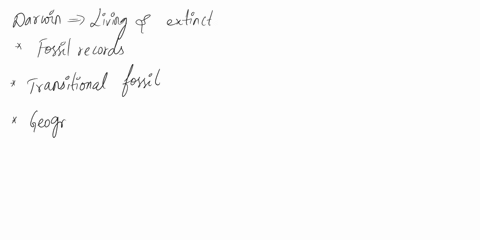 Darwin ⇒ Living & extinct
* Fossil records
* Transitional fossil
* Geogr